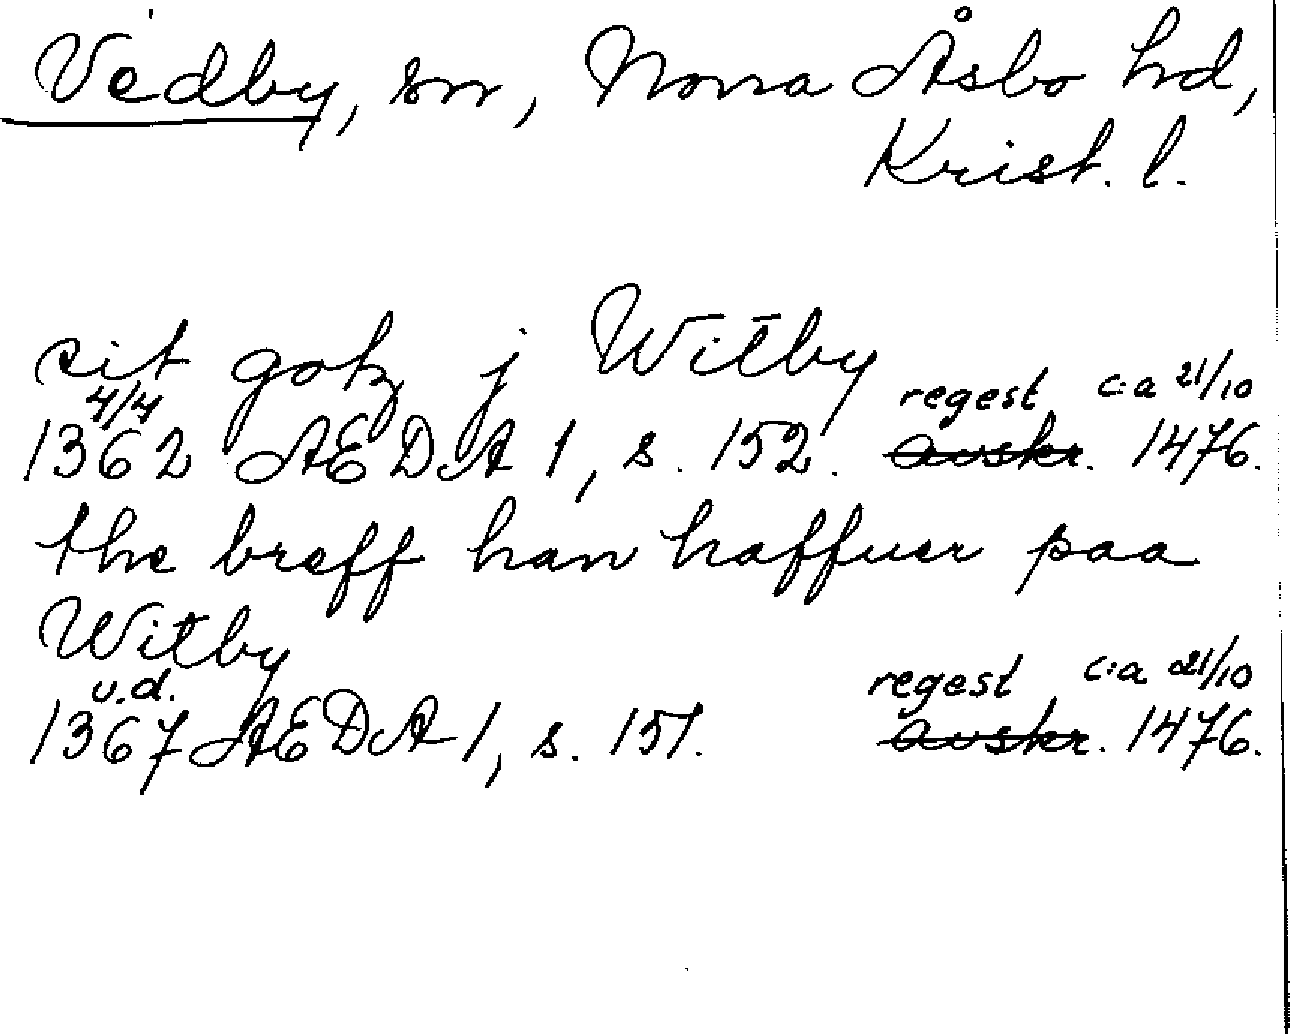 Vedby, sn, Norra Åsbo hd,
Krist. l.
sit gotz j Witby
4/4 regest c:a 21/10
1362 AEDA 1, s. 152. avskr. 1476.
the breff han haffuer paa
Witby
u.d. regest c:a 21/10
1367 AEDA 1, s. 151. avskr. 1476.